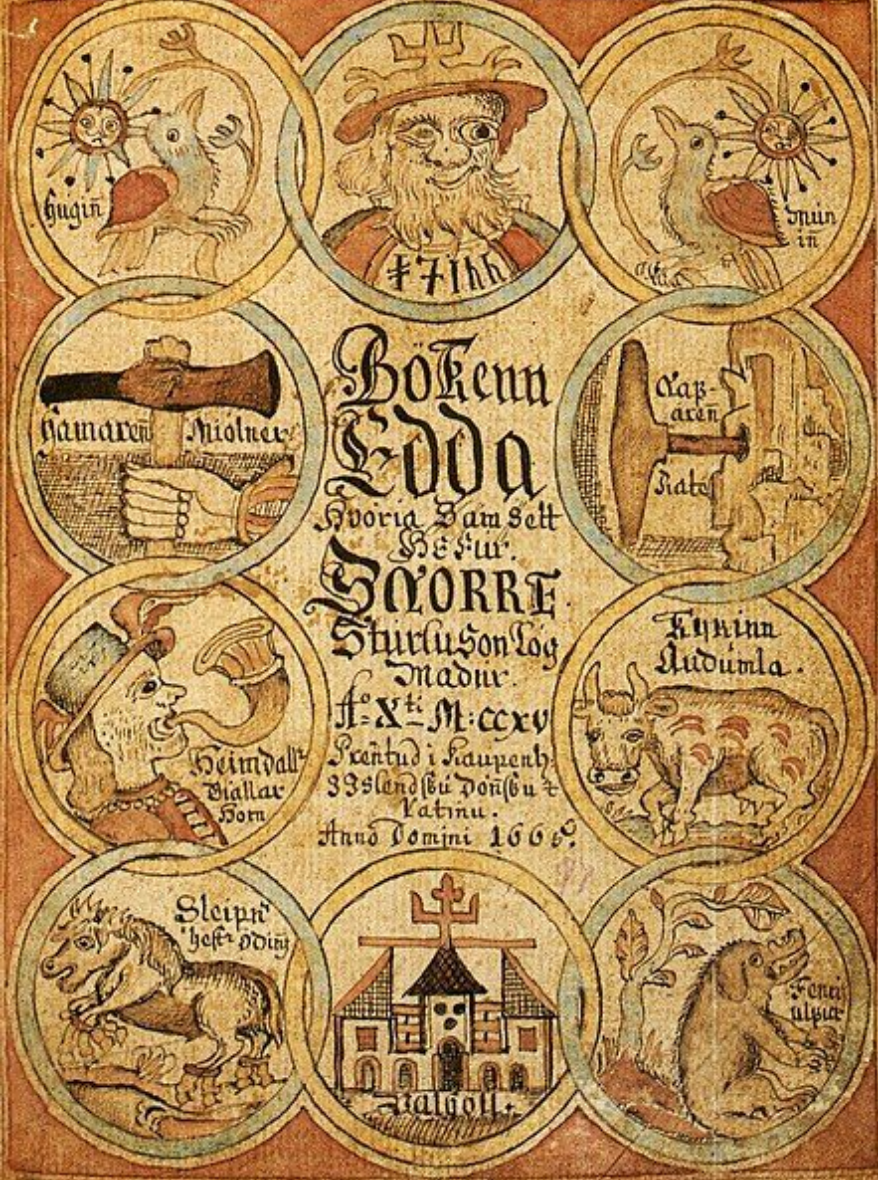 Hugin̄
Mun
in
Hamaren̄ Miólner
Naf-
aren̄
Rate
Bókenn
Edda
Hvöria Samsett
Hefur.
SNORRE
Sturluson Lög
Madur.
A° X ti M:CCXV
Pren̄tud i Kaupenh
Islendsku Dön̄sku &
Latinu.
Anno Domini 1665.
Heimdallr
Giallar
Horn
Kyrinn
Audúmla.
Sleipn̄
hestr Odins
Valholl.
Fenri
ulfur